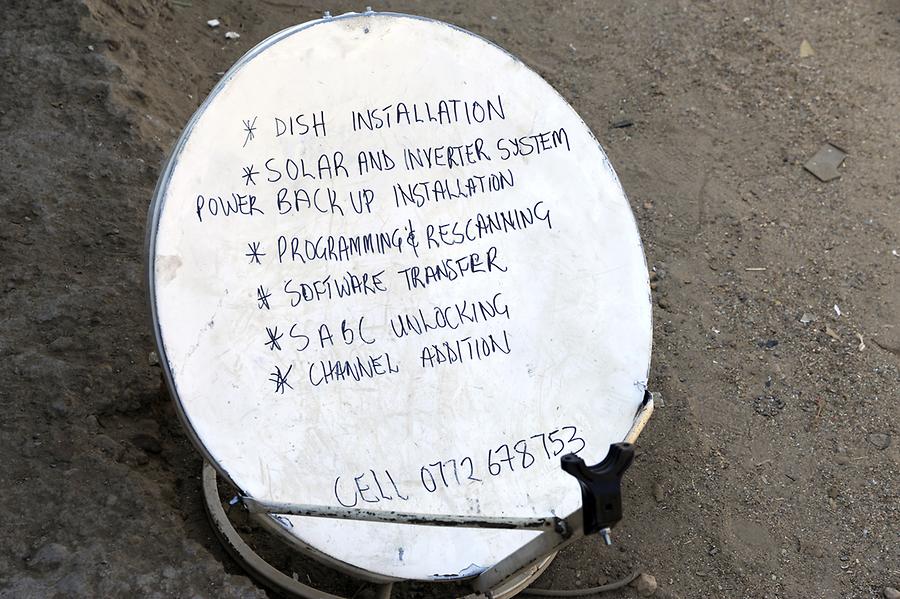 * DISH INSTALLATION
* SOLAR AND INVERTER SYSTEM
POWER BACK UP INSTALLATION
* PROGRAMMING & RESCANNING
* SOFTWARE TRANSFER
* SABC UNLOCKING
* CHANNEL ADDITION
CELL 0772 678753